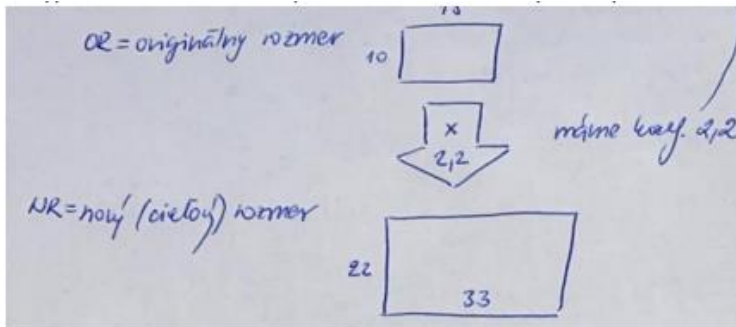 OR = originálny rozmer
10
x
2,2
máme koef. 2,2
NR = nový (cieľový) rozmer
22
33